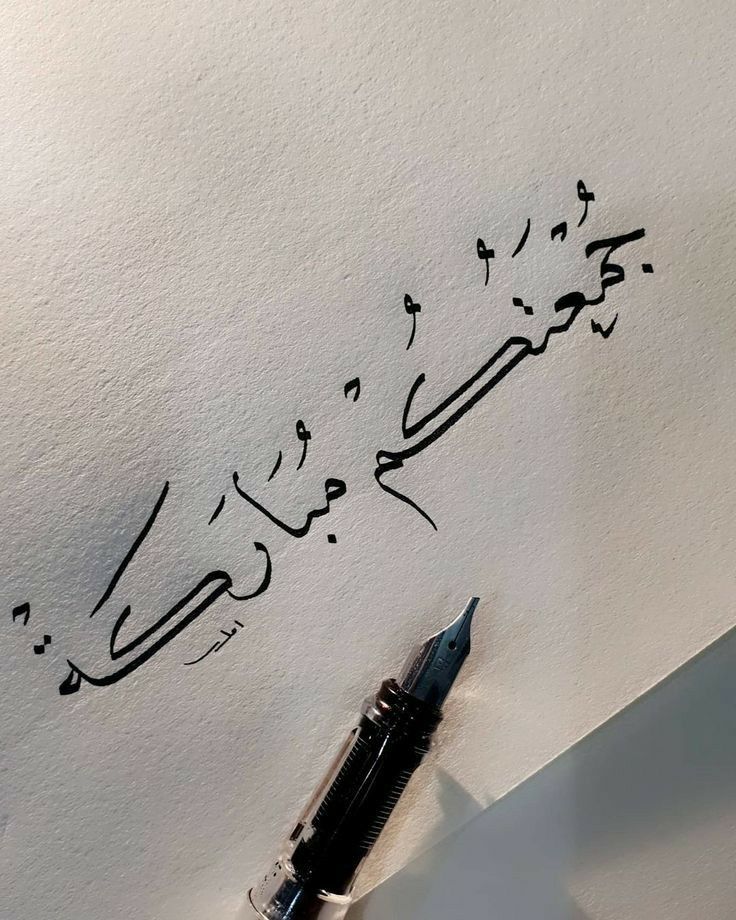 جُمْعَتُكُمْ مُبَارَكَة